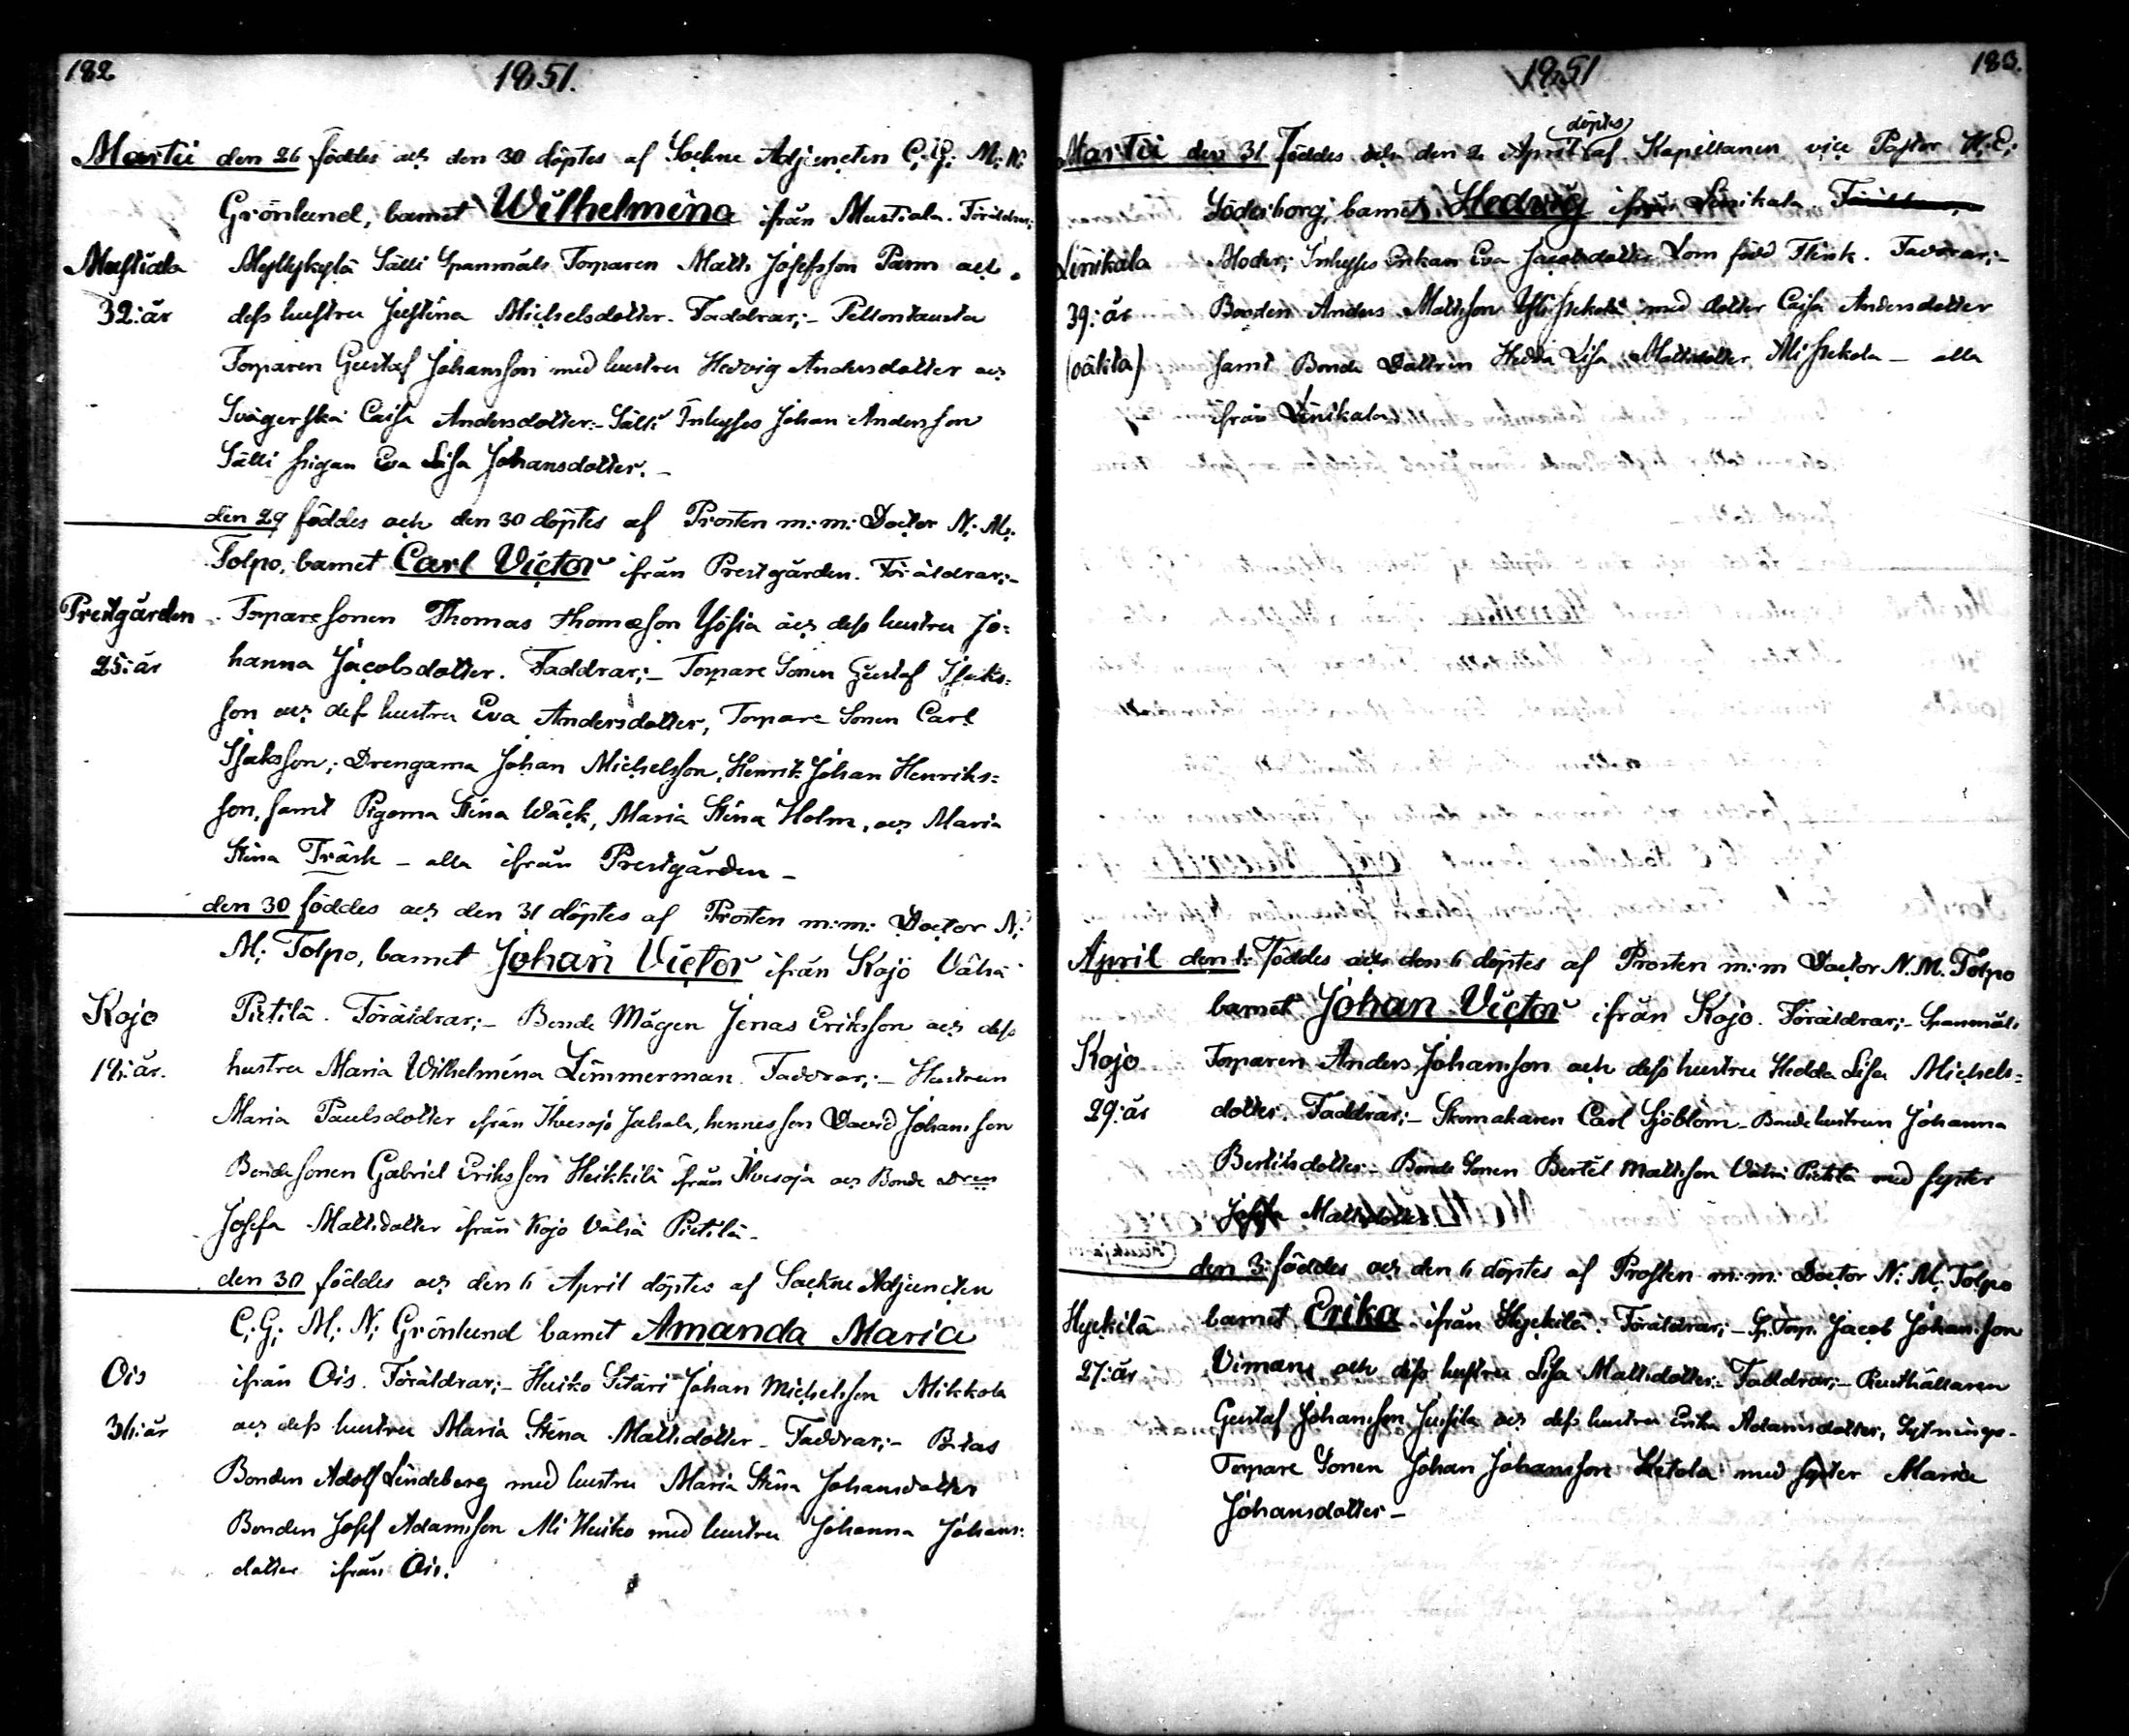 182
1851.
Martii den 26 föddes och den 30 döptes af Sockne Adjuncten C; G; M; N;
Grönlund, barnet Wilhelmina ifrån Mustiala. Föräldrar;
Mustiala
32: år
Myllykylä Sälli Spanmåls Torparen Matts Josefsson Parm och
dess hustru Justina Michelsdotter. Faddrar;- Peltontausta
Torparen Gustaf Johansson med hustru Hedvig Andersdotter och
Svägerska Caisa Andersdotter:- Sälli Inhysses Johan Andersson
Sälli pigan Eva Lisa Johansdotter.-
den 29 föddes och den 30 döptes af Prosten m:m: Doctor N; M;
Tolpo, barnet Carl Victor ifrån Prestgården. Föräldrar;-
Prestgården
25: år
Torpare sonen Thomas Thomasson och dess hustru Jo=
hanna Jacobsdotter. Faddrar;- Torpare Sonen Gustaf Isaks=
son och dess hustru Eva Andersdotter, Torpare Sonen Carl
Isaksson; Drengarna Johan Michelsson, Henrik Johan Henriks=
son, samt Pigorna Stina Wäck, Maria Stina Holm, och Maria
Stina Träsk - alla ifrån Prestgården -
den 30 föddes och den 31 döptes af Prosten m:m: Doctor N;
M; Tolpo, barnet Johan Victor ifrån Kojo Vähä
Kojo
19: år.
Pietilä. Föräldrar;- Bonde Mågen Jonas Eriksson och dess
hustru Maria Wilhelmina Limmerman. Faddrar;- Hustrun
Maria Paulsdotter ifrån hennes son David Johansson
Bonde sonen Gabriel Eriksson Heikkilä ifrån Ilvesoja och Bonde
Josefa Mattsdotter ifrån Kojo Vähä Pietilä.-
den 30 föddes och den 6 April döptes af Sockne Adjuncten
C; G; M; N; Grönlund barnet Amanda Maria
Ois
36: år
ifrån Ois. Föräldrar;- Huiko Johan Michelsson Mikkola
och dess hustru Maria Stina Mattsdotter - Faddrar;-
Bonden Adolf Lindeberg med hustru Maria Stina Johansdotter
Bonden Josef Adamsson Ali Huiko med hustru Johanna Johans=
dotter ifrån Ois.
183.
1851
Martii den 31 föddes och den 2 April döptes af Kapellanen vice Pastor H; E;
Söderborg, barnet Hedvig ifrån Linikala
Linikala
39: år
(oäkta)
Moder; Inhysses Enkan Eva Jacobsdotter Lom född Flink. Faddrar;-
Bonden Anders Mattsson med dotter Caisa Andersdotter
samt Bonde Dottren Hedda Lisa Mattsdotter - alla
ifrån Linikala
April den 1: föddes och den 6 döptes af Prosten m:m Doctor N. M. Tolpo
barnet Johan Victor ifrån Kojo. Föräldrar;- Spanmåls
Kojo
29: år
Torparen Anders Johansson och dess hustru Hedda Lisa Michels=
dotter. Faddrar;- Skomakaren Carl Sjöblom - Bonde hustrun Johanna
Bertilsdotter - Bonde Sonen Bertil Mattsson Vähä Pietilä med syster
Josefa Mattsdotter
den 3: föddes och den 6 döptes af Prosten m:m: Doctor N; M; Tolpo
barnet Erika ifrån Hyckilä. Föräldrar;- Sp. Torp. Jacob Johansson
Hyckilä
27: år
Viman, och dess hustru Lisa Mattsdotter.- Faddrar;- Rusthållaren
Gustaf Johansson Jussila och dess hustru Erika Adamsdotter, Sytnings-
Torpare Sonen Johan Johansson Ketola med syster Maria
Johansdotter -